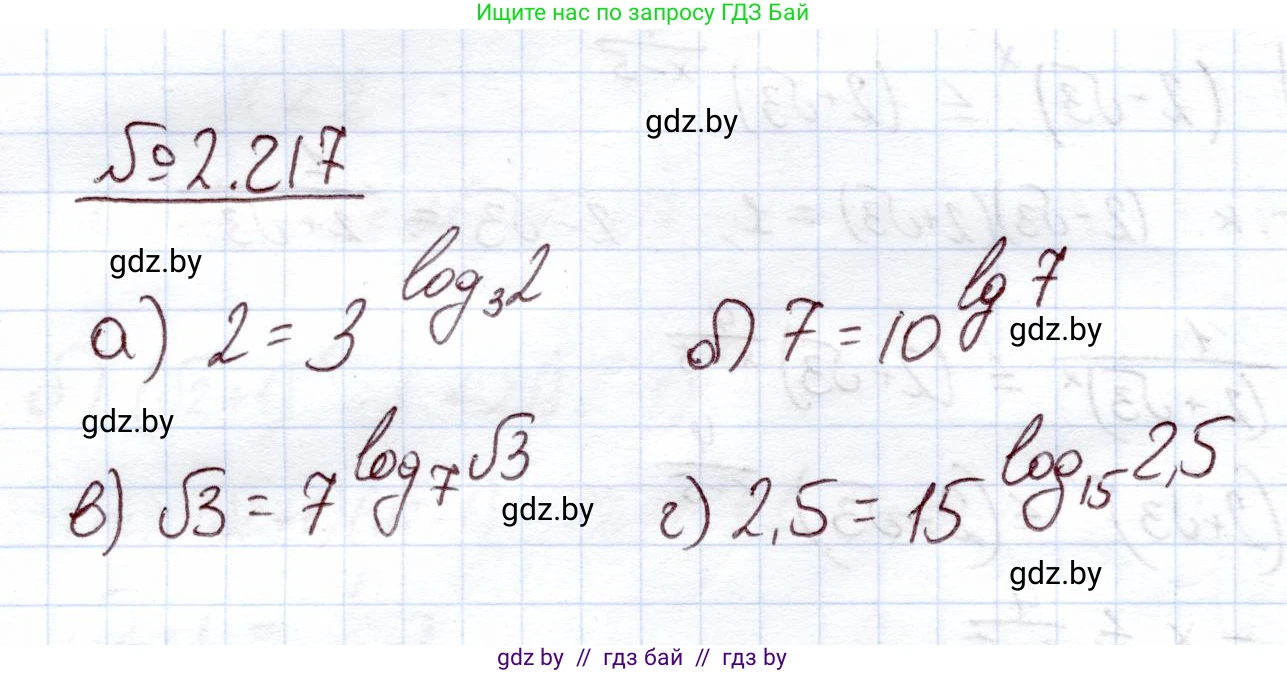 Ищите нас по запросу ГДЗ Бай
gdz.by
№2.217
gdz.by
а) 2 = 3^log₃2
б) 7 = 10^lg 7
gdz.by
gdz.by
в) √3 = 7^log₇√3
г) 2,5 = 15^log₁₅2,5
gdz.by
gdz.by
gdz by // гдз бай // гдз by